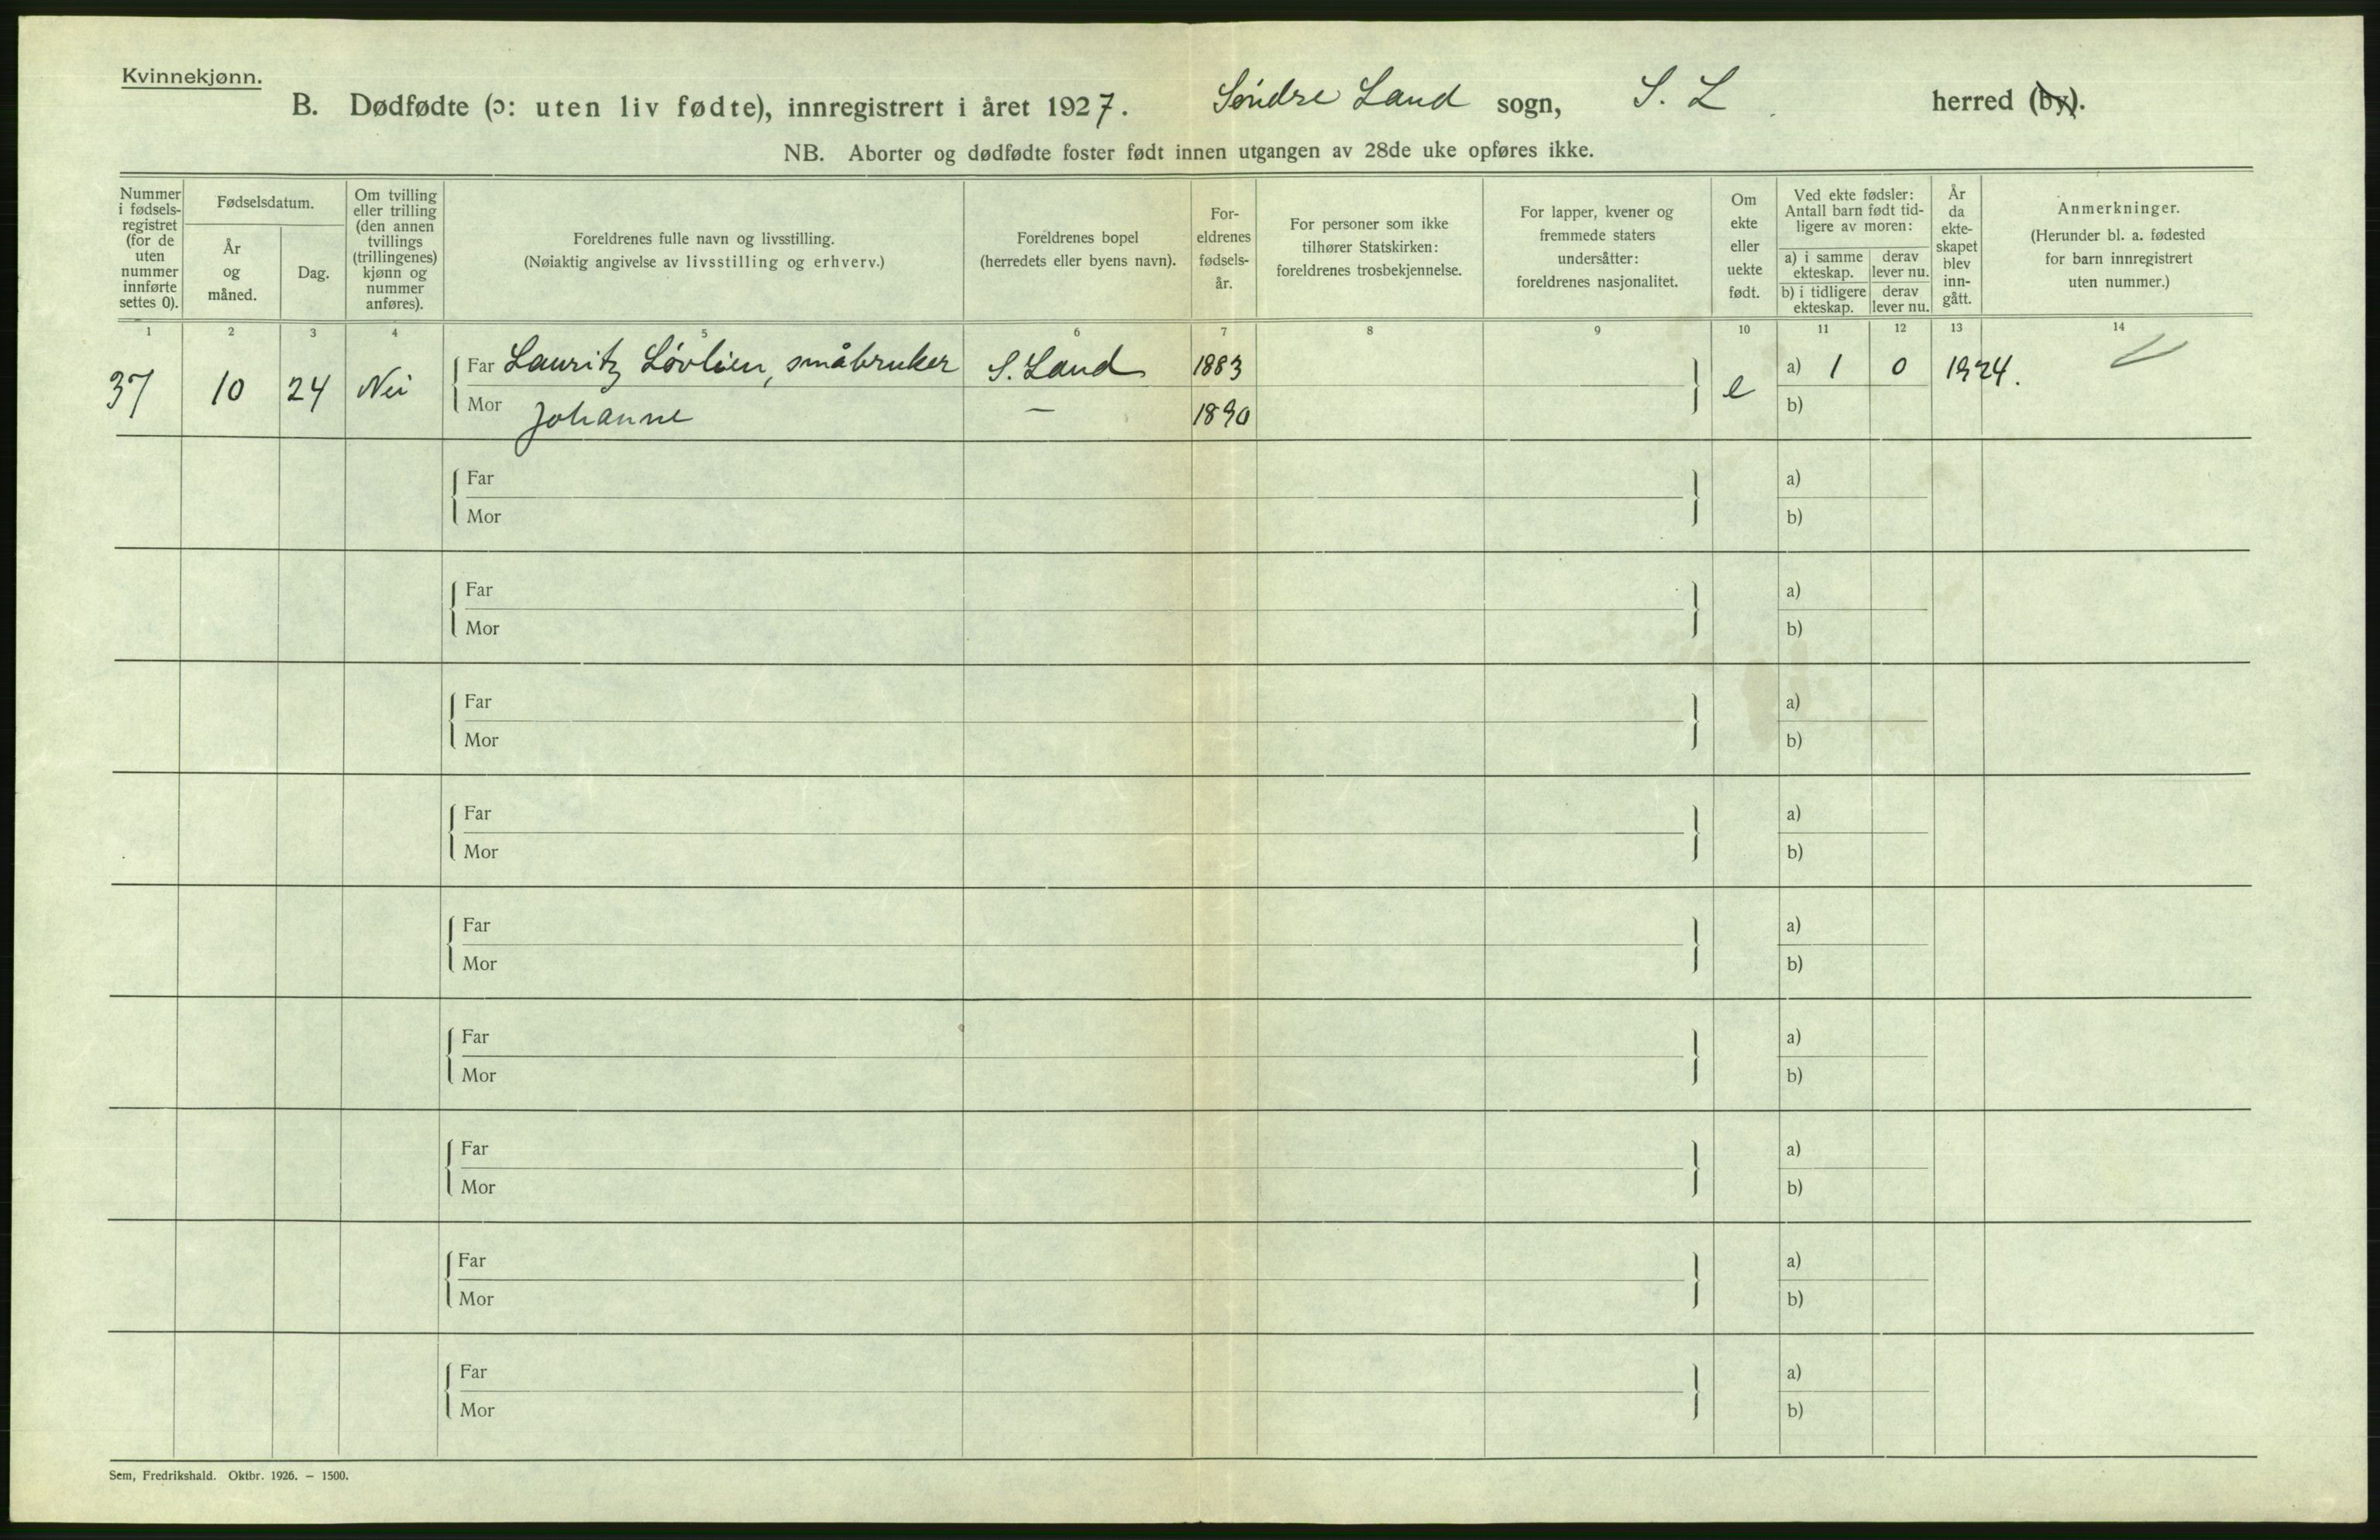 Kvinnekjønn.
B. Dødfødte (ɔ: uten liv fødte), innregistrert i året 1927. Søndre Land sogn, S. L herred (by).
NB. Aborter og dødfødte foster født innen utgangen av 28de uke opføres ikke.
Nummer i fødsels-registret (for de uten nummer innførte settes 0).
Fødselsdatum.
År og måned.
Dag.
Om tvilling eller trilling (den annen tvillings (trillingenes) kjønn og nummer anføres).
Foreldrenes fulle navn og livsstilling.
(Nøiaktig angivelse av livsstilling og erhverv.)
Foreldrenes bopel
(herredets eller byens navn).
For-eldrenes fødsels-år.
For personer som ikke
tilhører Statskirken:
foreldrenes trosbekjennelse.
For lapper, kvener og
fremmede staters
undersåtter:
foreldrenes nasjonalitet.
Om ekte eller uekte født.
Ved ekte fødsler:
Antall barn født tid-
ligere av moren:
a) i samme ekteskap. derav lever nu.
b) i tidligere ekteskap. derav lever nu.
År da ekte-skapet blev inn-gått.
Anmerkninger.
(Herunder bl. a. fødested
for barn innregistrert
uten nummer.)
1 2 3 4 5 6 7 8 9 10 11 12 13 14
37 10 24 Nei Far Lauritz Løvlien, småbruker S. Land 1883 e a) 1 0 1924.
Mor Johanne — 1890 b)
Far a)
Mor b)
Far a)
Mor b)
Far a)
Mor b)
Far a)
Mor b)
Far a)
Mor b)
Far a)
Mor b)
Far a)
Mor b)
Far a)
Mor b)
Far a)
Mor b)
Sem, Fredrikshald. Oktbr. 1926. — 1500.